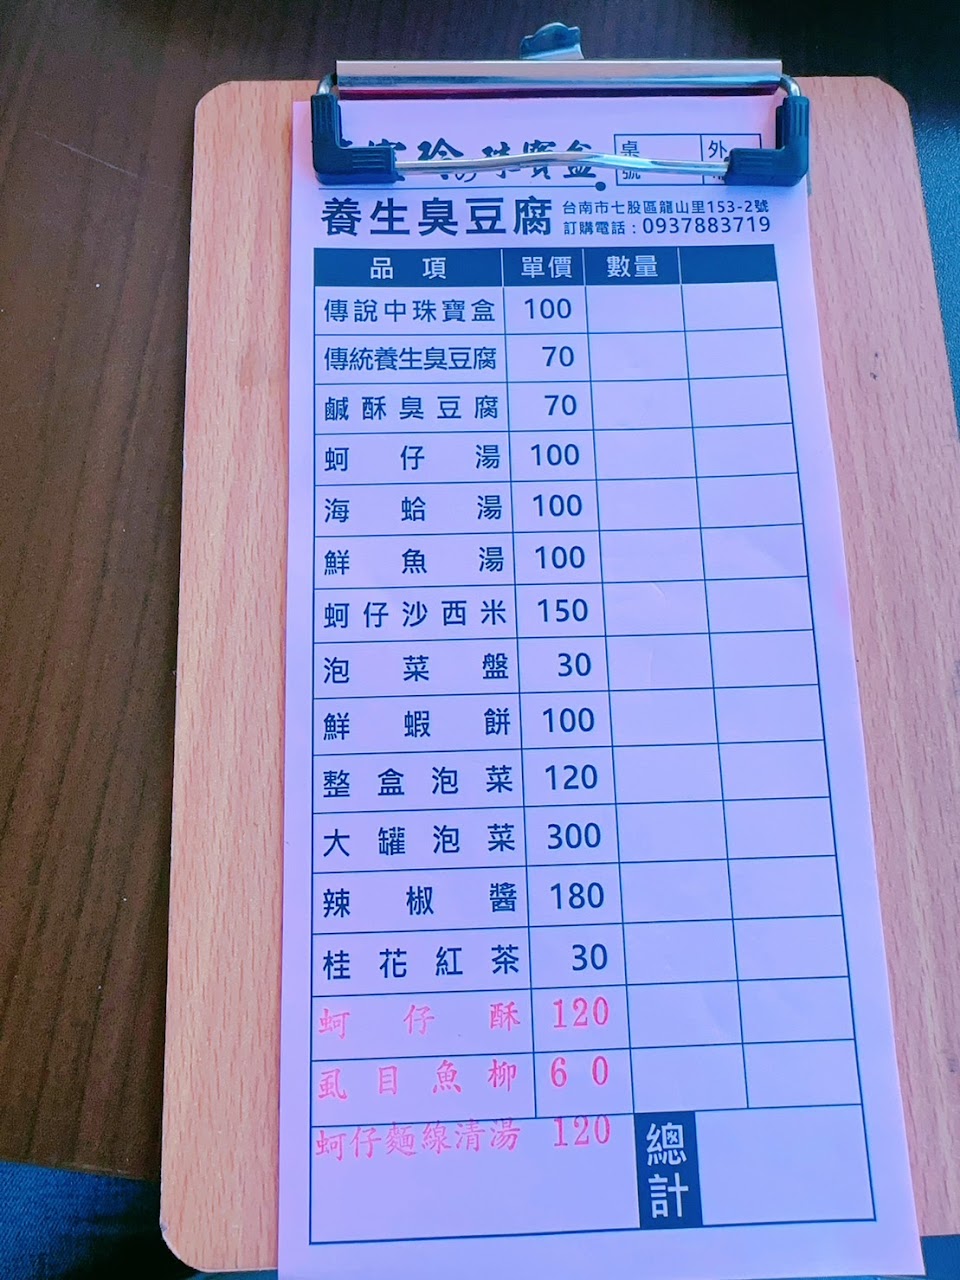 珍 珠寶盒
桌號
外
養生臭豆腐
台南市七股區龍山里153-2號
訂購電話：0937883719
品項 單價 數量
傳說中珠寶盒 100
傳統養生臭豆腐 70
鹹酥臭豆腐 70
蚵仔湯 100
海蛤湯 100
鮮魚湯 100
蚵仔沙西米 150
泡菜盤 30
鮮蝦餅 100
整盒泡菜 120
大罐泡菜 300
辣椒醬 180
桂花紅茶 30
蚵仔酥 120
虱目魚柳 60
蚵仔麵線清湯 120
總計